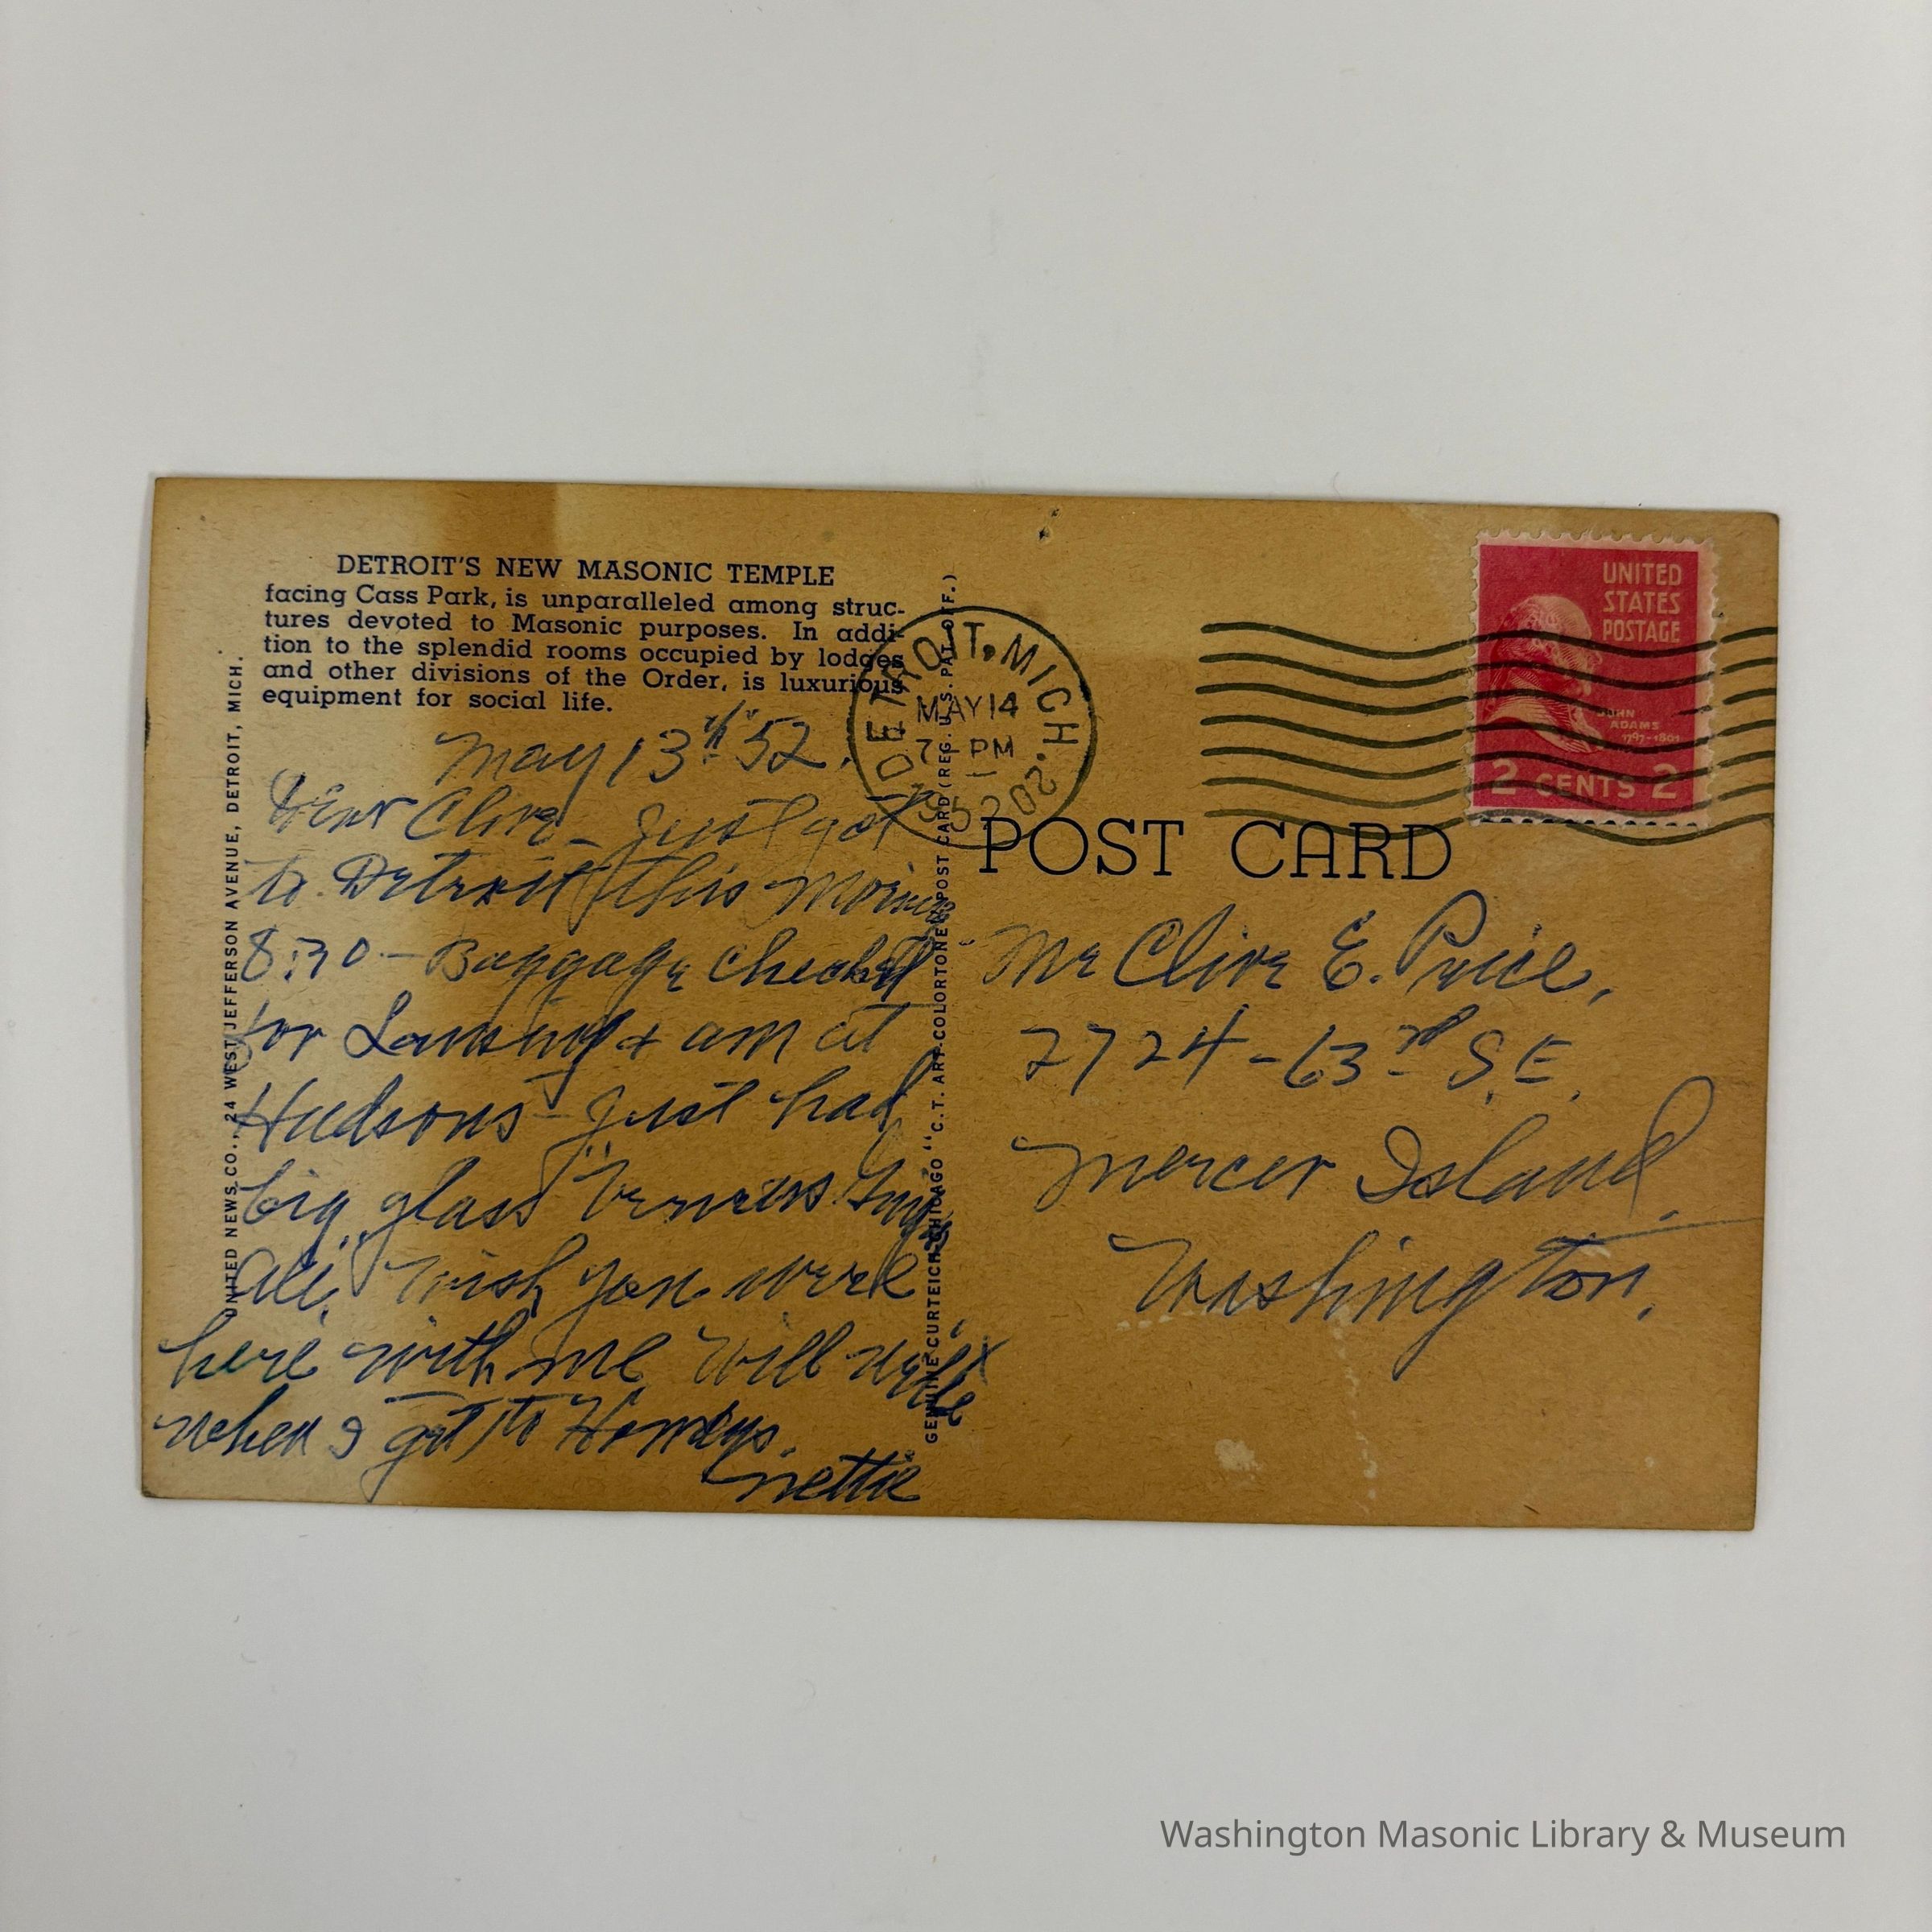 DETROIT'S NEW MASONIC TEMPLE
facing Cass Park, is unparalleled among struc-
tures devoted to Masonic purposes. In addi-
tion to the splendid rooms occupied by lodges
and other divisions of the Order, is luxurious
equipment for social life.
May 13th 52.
Dear Clive - Just got
to Detroit this morning
8:30 - Baggage checked
for Lansing & am at
Hudsons - Just had
big glass "Vernors Ginger
Ale" wish you were
here with me. Will write
when I get to Homers.
Nettie
UNITED NEWS CO., 24 WEST JEFFERSON AVENUE, DETROIT, MICH.
GENUINE CURTEICH-CHICAGO "C.T. ART-COLORTONE" POST CARD (REG. U.S. PAT. OFF.)
DETROIT, MICH. 202
MAY 14
7 PM
1952
UNITED
STATES
POSTAGE
JOHN
ADAMS
1797-1801
2 CENTS 2
POST CARD
Mr Clive E. Price,
2724 - 63rd S.E.
Mercer Island.
Washington.
Washington Masonic Library & Museum